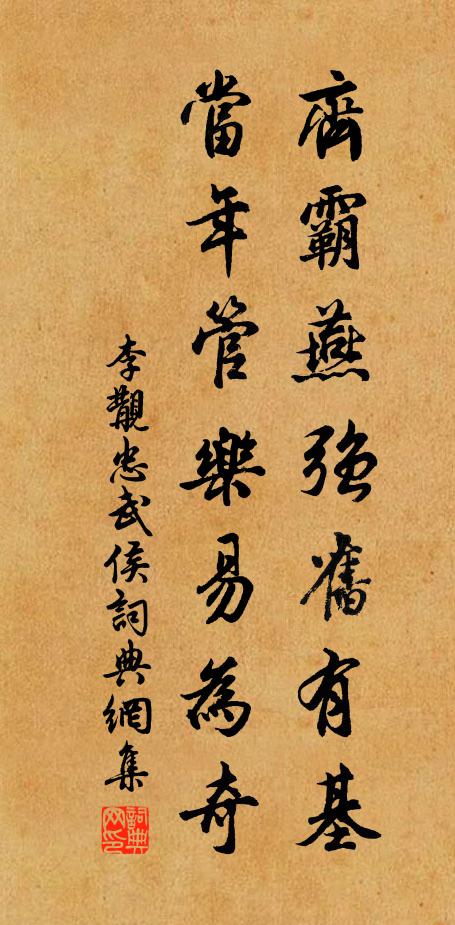 齊霸燕強舊有基
當年管樂易為奇
李觀忠武侯詞典網集
詞典网印